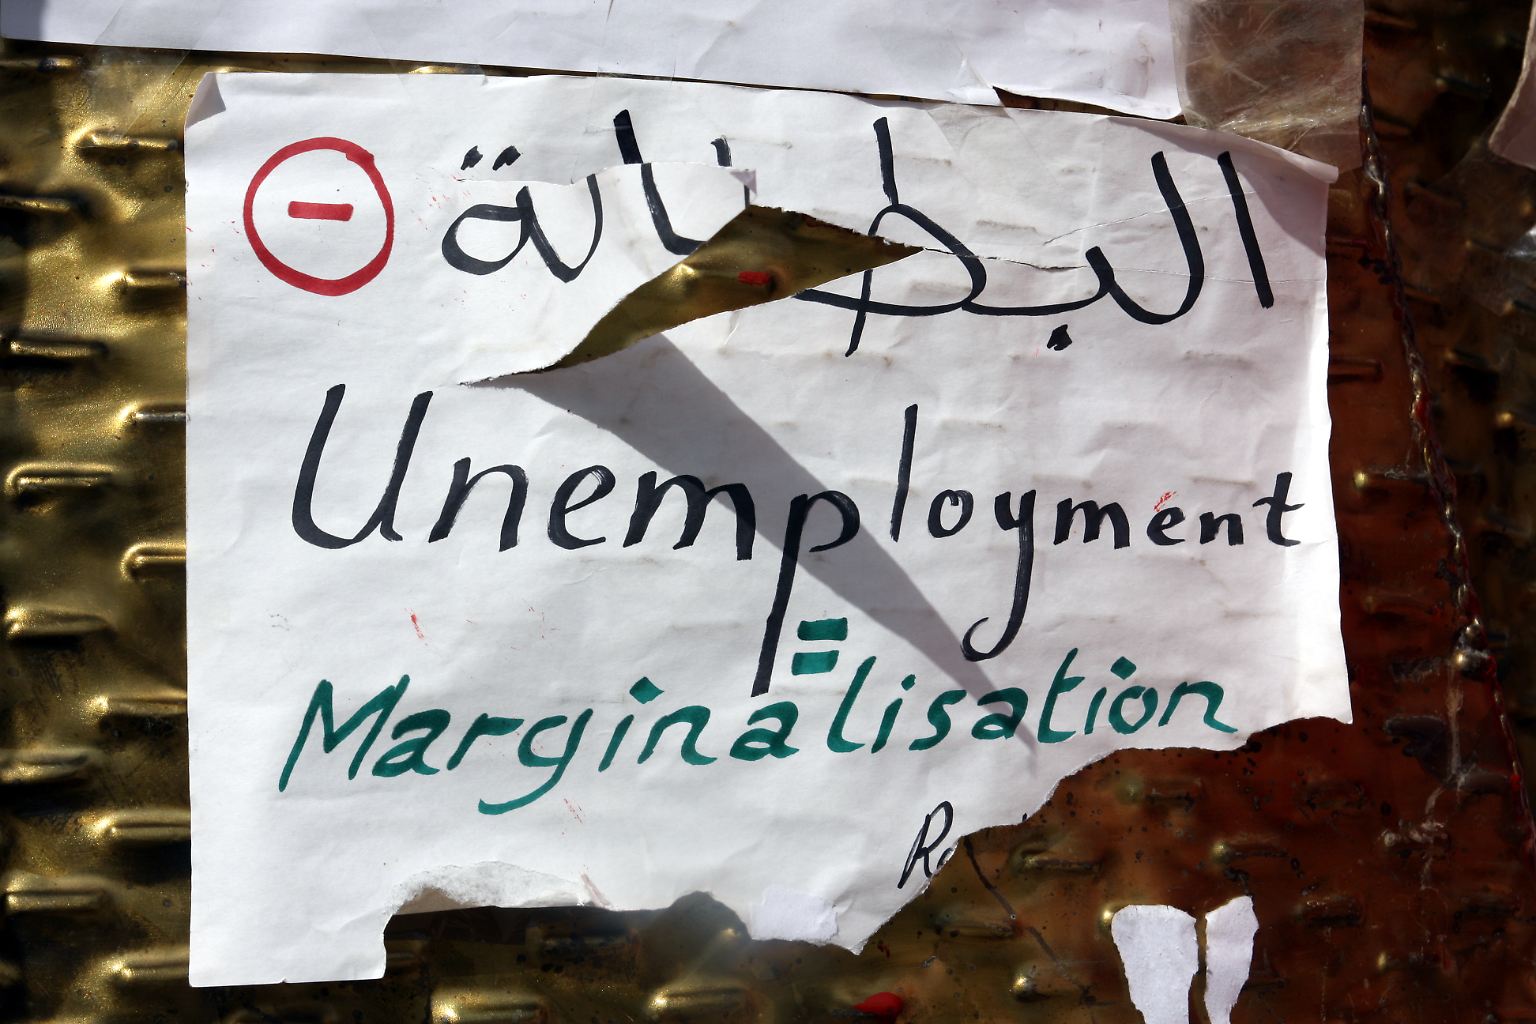 البطالة
Unemployment
=
Marginalisation